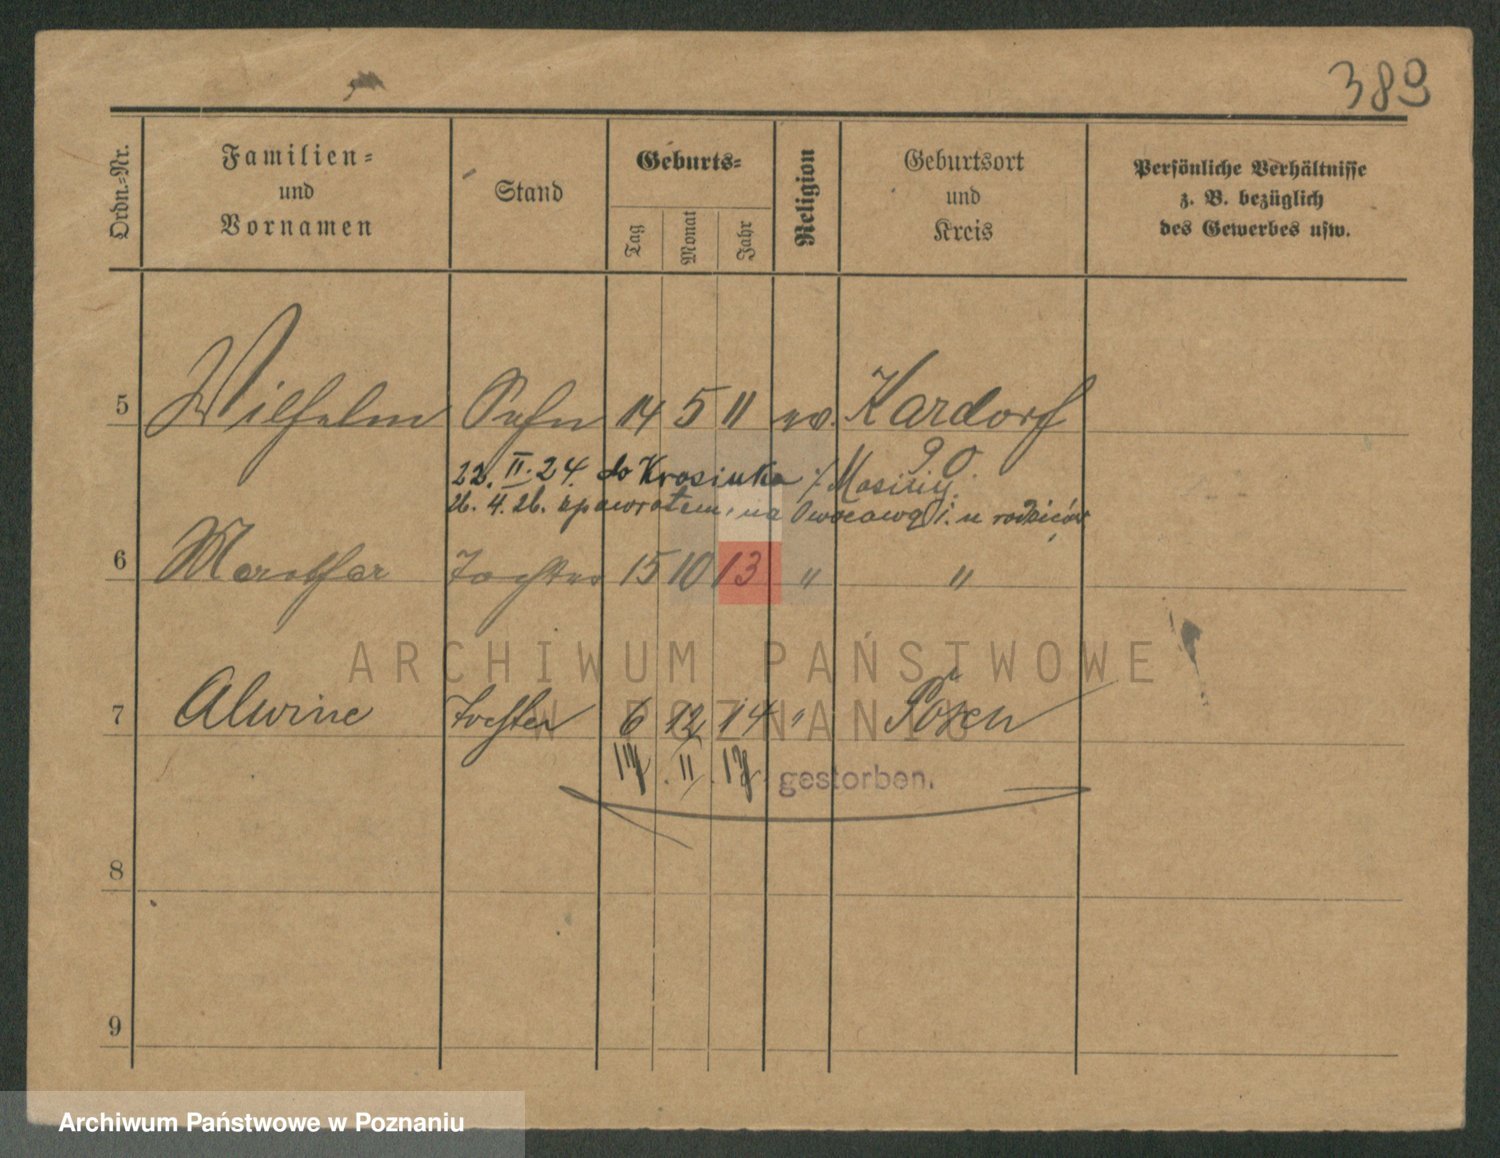 389
Ordn.-Nr.
Familien-
und
Vornamen
Stand
Geburts-
Tag
Monat
Jahr
Religion
Geburtsort
und
Kreis
Persönliche Verhältnisse
z. B. bezüglich
des Gewerbes usw.
5 Wilhelm Sohn 14 5 11 ev. Kardorf
22. II. 24. do Krosinka / Mosiny.
26. 4. 26. zpowrotem, na Owocową 1. u rodziców
6 Tochter 15 10 13 " "
7 Alwine Tochter 6 12 14 " Posen
14. II. 17. gestorben.
8
9
ARCHIWUM PAŃSTWOWE
W POZNANIU
Archiwum Państwowe w Poznaniu